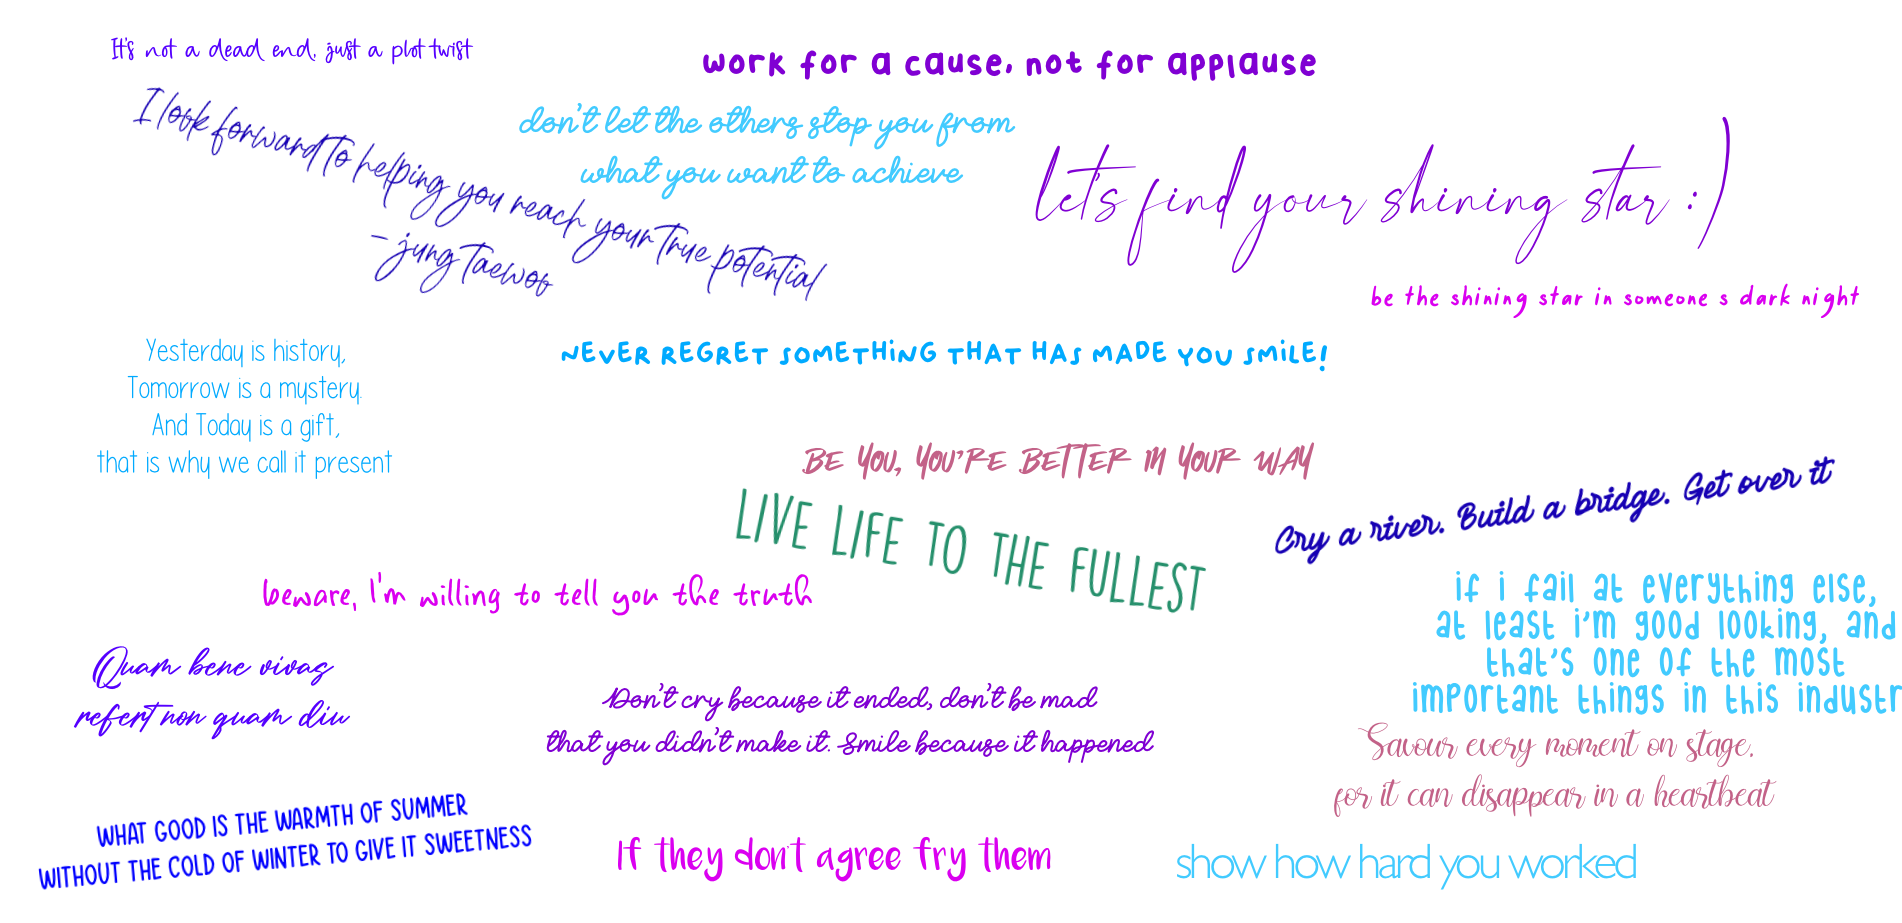 It's not a dead end, just a plot twist
work for a cause, not for applause
I look forward to helping you reach your true potential
- jung taewoo
don't let the others stop you from
what you want to achieve
let's find your shining star :)
be the shining star in someone s dark night
Yesterday is history,
Tomorrow is a mystery.
And Today is a gift,
that is why we call it present
NEVER REGRET SOMETHING THAT HAS MADE YOU SMiLE!
BE YOU, YOU'RE BETTER IN YOUR WAY
Cry a river. Build a bridge. Get over it
LIVE LIFE TO THE FULLEST
beware, I'm willing to tell you the truth
if i fail at everything else,
at least i'm good looking, and
that's one of the most
important things in this industr
Quam bene vivas
refert non quam diu
Don't cry because it ended, don't be mad
that you didn't make it. Smile because it happened
Savour every moment on stage.
for it can disappear in a heartbeat
WHAT GOOD IS THE WARMTH OF SUMMER
WITHOUT THE COLD OF WINTER TO GIVE IT SWEETNESS
If they don't agree fry them
show how hard you worked